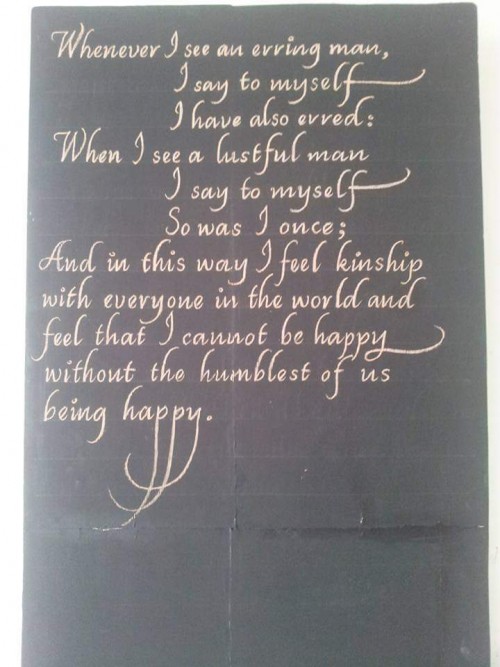 Whenever I see an erring man,
I say to myself
I have also erred:
When I see a lustful man
I say to myself
So was I once;
And in this way I feel kinship
with everyone in the world and
feel that I cannot be happy
without the humblest of us
being happy.